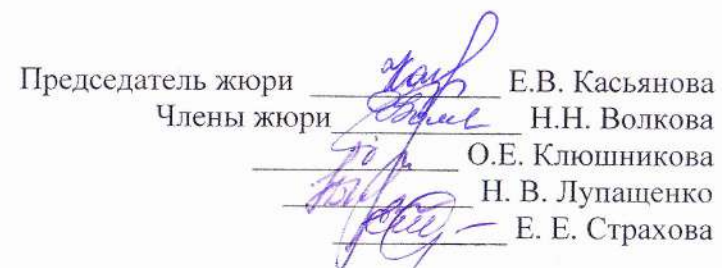 Председатель жюри Е.В. Касьянова
Члены жюри Н.Н. Волкова
О.Е. Клюшникова
Н. В. Лупащенко
Е. Е. Страхова